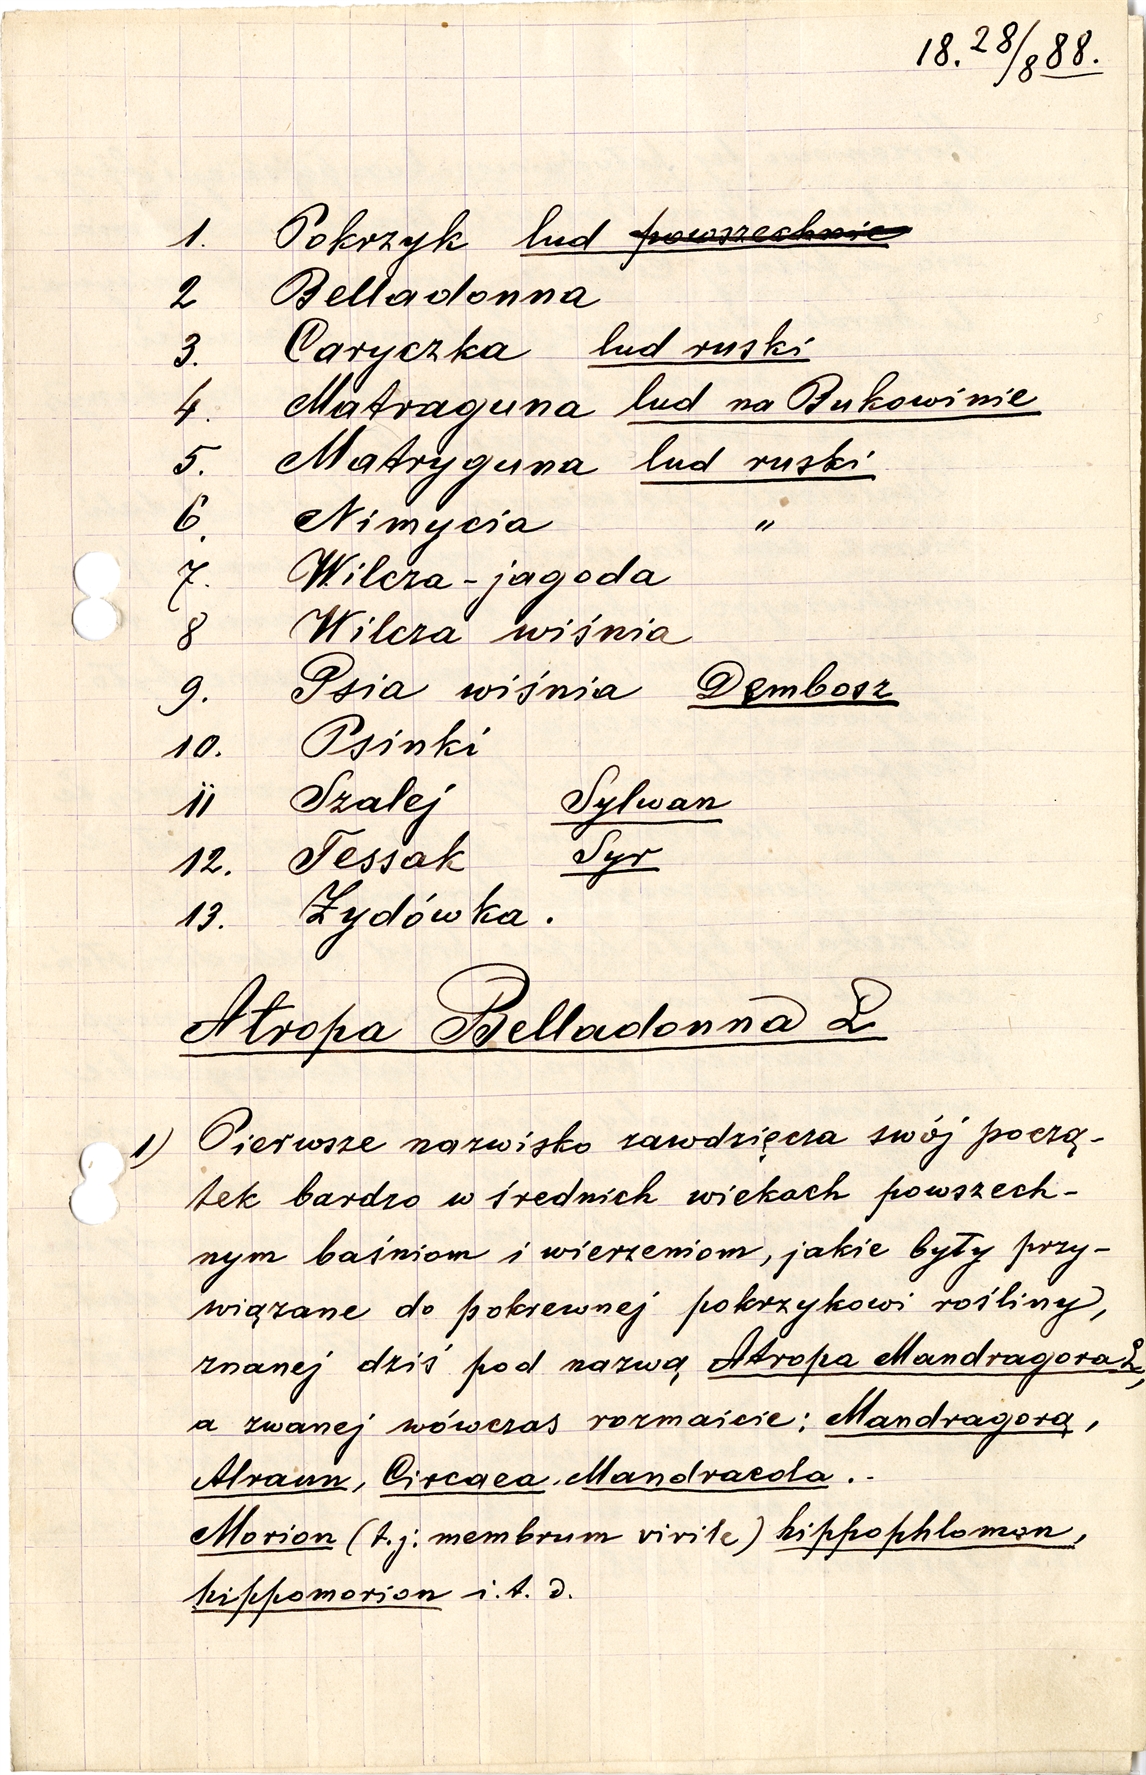 18. 28/8 88.
1. Pokrzyk lud powszechnie
2 Belladonna
3. Caryczka lud ruski
4. Matraguna lud na Bukowinie
5. Matryguna lud ruski
6. Nimycia "
7. Wilcza-jagoda
8 Wilcza wiśnia
9. Psia wiśnia Dęmbosz
10. Psinki
11 Szalej Sylwan
12. Tessak Syr
13. Żydówka.
Atropa Belladonna L
1) Pierwsze nazwisko zawdzięcza swój począ-
tek bardzo w średnich wiekach powszech-
nym baśniom i wierzeniom, jakie były przy-
wiązane do pokrewnej pokrzykowi rośliny,
znanej dziś pod nazwą Atropa Mandragora L,
a zwanej wówczas rozmaicie: Mandragorą,
Alraun, Circaea Mandracola.-
Morion (t.j. membrum virile) hippophlomon,
hippomorion i.t.d.